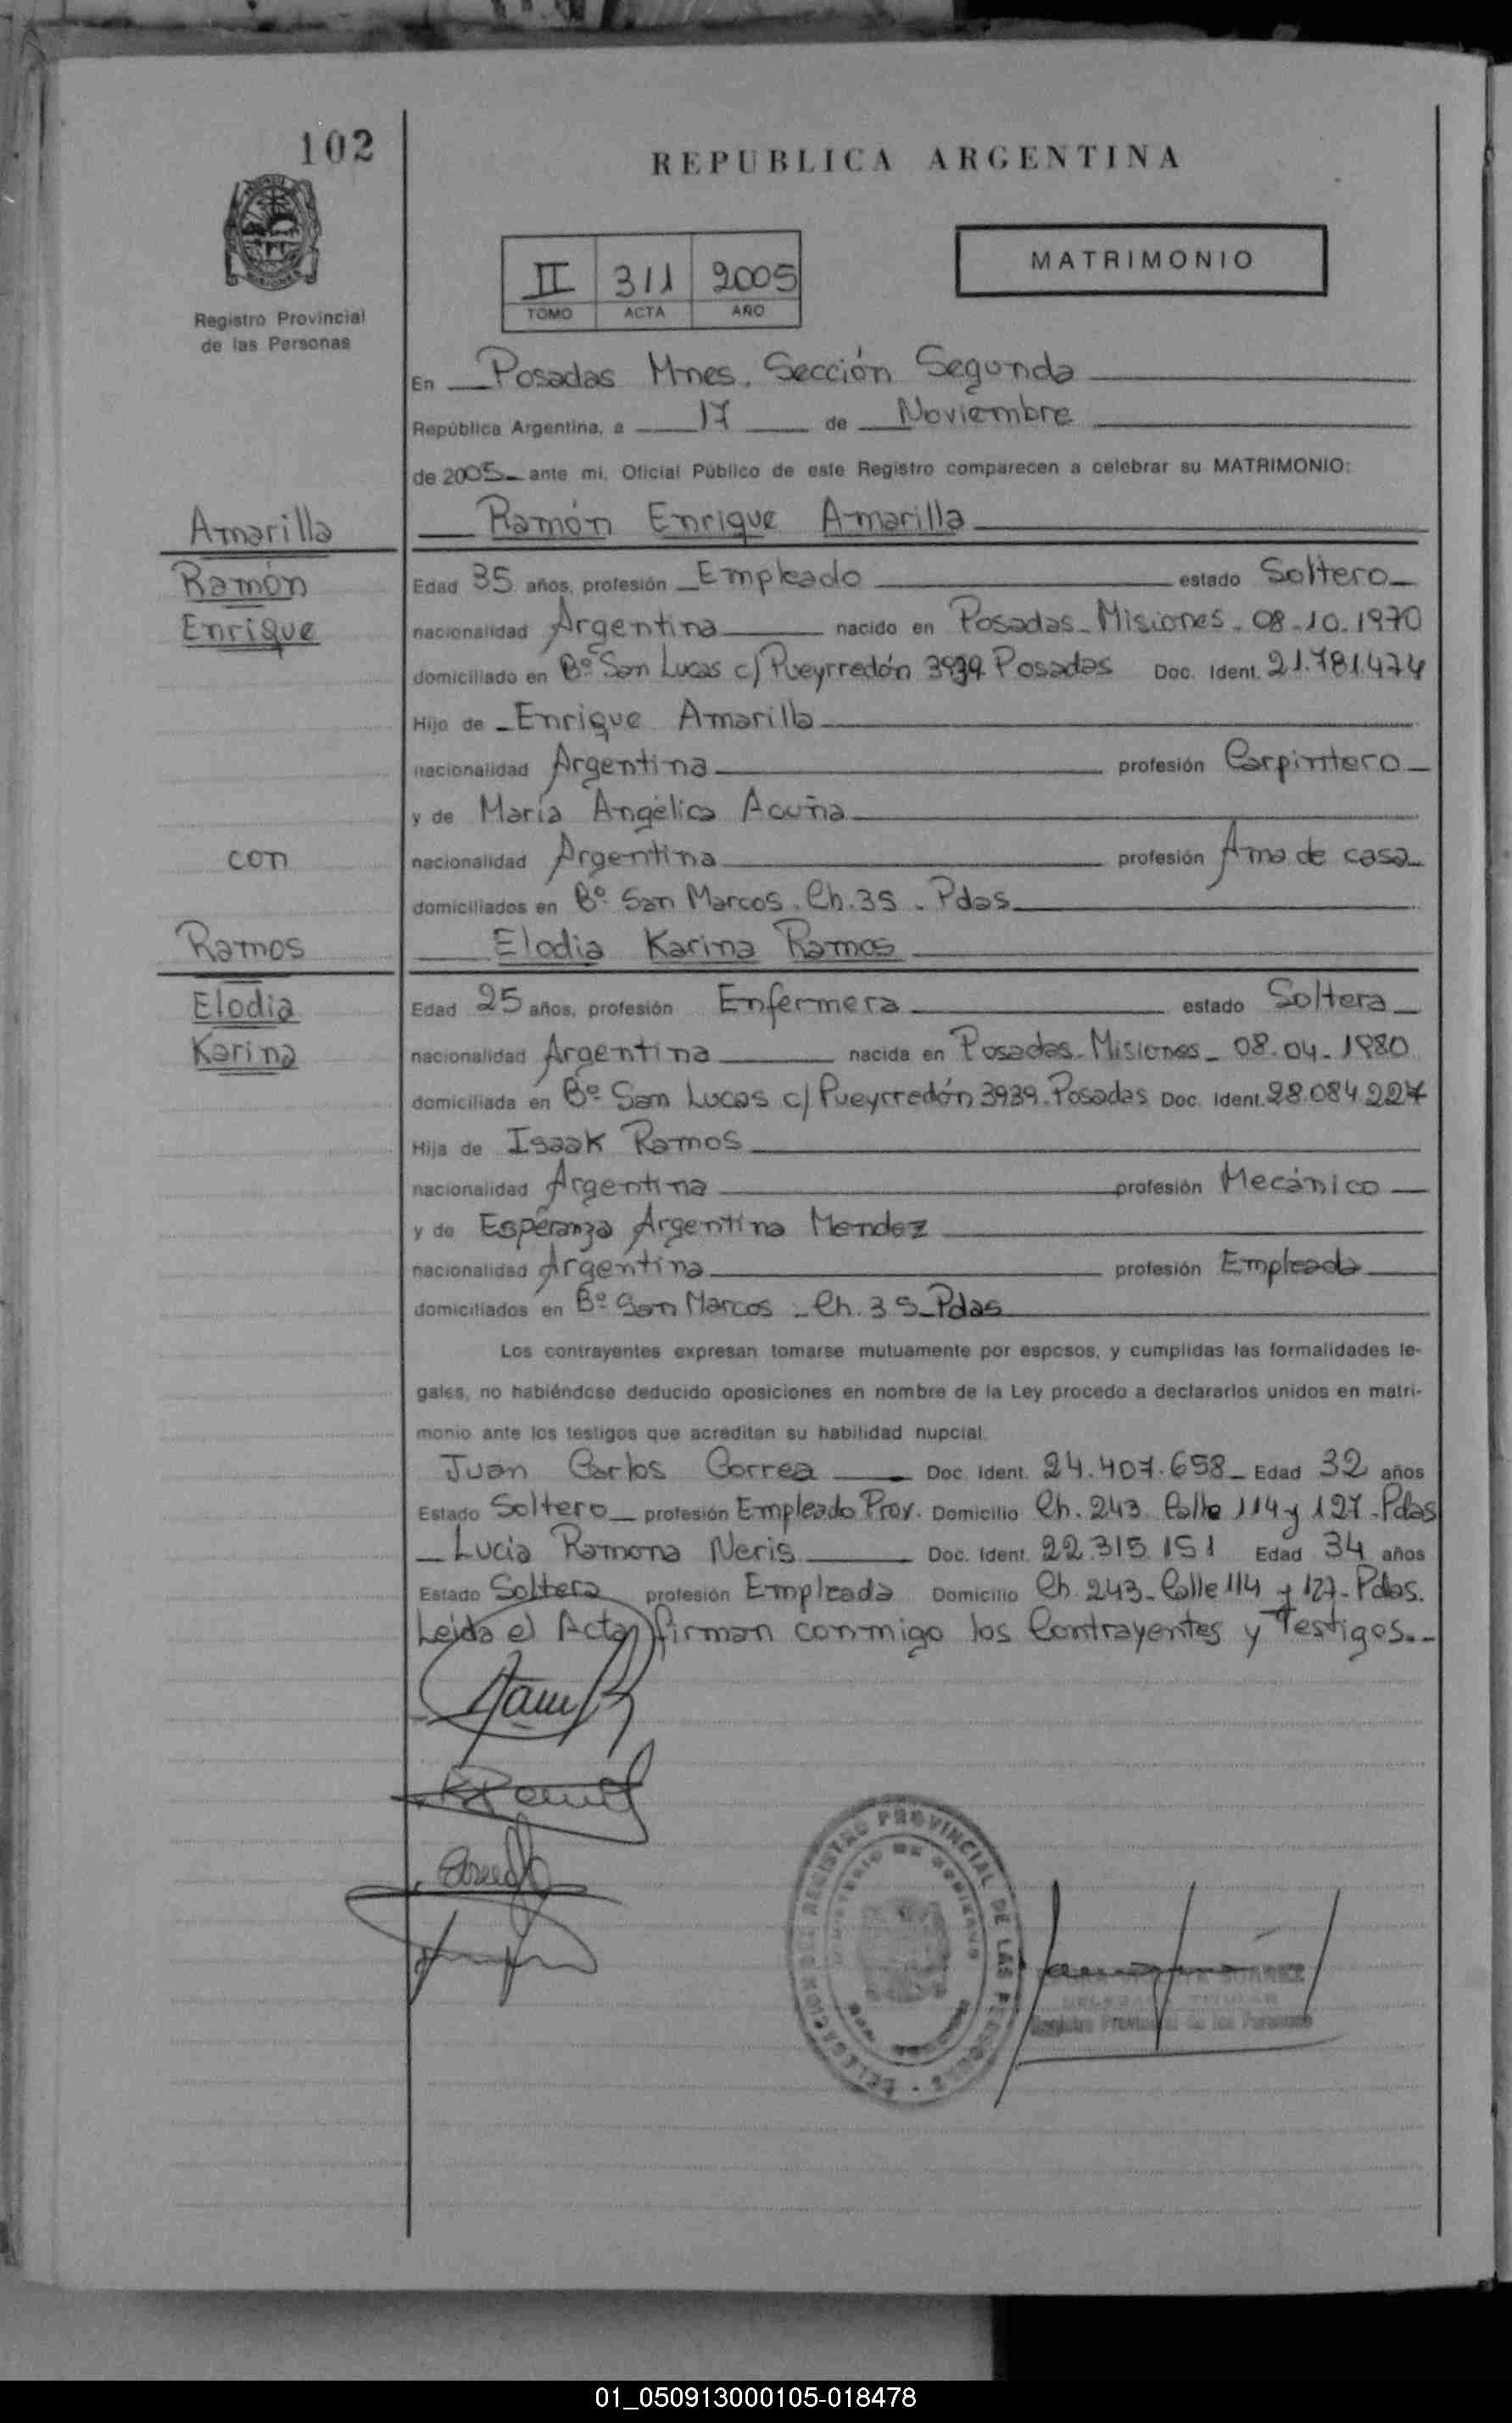 102
REPUBLICA ARGENTINA
MATRIMONIO
II 311 2005
TOMO ACTA AÑO
Registro Provincial
de las Personas
En Posadas Mnes. Sección Segunda
República Argentina, a 17 de Noviembre
de 2005 ante mi, Oficial Público de este Registro comparecen a celebrar su MATRIMONIO:
Amarilla
Ramón Enrique Amarilla
Ramón
Edad 35 años, profesión Empleado estado Soltero
Enrique
nacionalidad Argentina nacido en Posadas - Misiones - 08-10-1970
domiciliado en Bº San Lucas c/ Pueyrredón 3939 Posadas Doc. Ident. 21.781.474
Hijo de Enrique Amarilla
nacionalidad Argentina profesión Carpintero
y de María Angélica Acuña
con
nacionalidad Argentina profesión Ama de casa
domiciliados en Bº San Marcos. Ch. 35 - Pdas
Ramos
Elodia Karina Ramos
Elodia
Edad 25 años, profesión Enfermera estado Soltera
Karina
nacionalidad Argentina nacida en Posadas - Misiones - 08-04-1980
domiciliada en Bº San Lucas c/ Pueyrredón 3939 - Posadas Doc. Ident. 28.084.227
Hija de Isaak Ramos
nacionalidad Argentina profesión Mecánico
y de Esperanza Argentina Mendez
nacionalidad Argentina profesión Empleada
domiciliados en Bº San Marcos - Ch. 35 - Pdas
Los contrayentes expresan tomarse mutuamente por esposos, y cumplidas las formalidades le-
gales, no habiéndose deducido oposiciones en nombre de la Ley procedo a declararlos unidos en matri-
monio ante los testigos que acreditan su habilidad nupcial.
Juan Carlos Correa Doc. Ident. 24.407.658 - Edad 32 años
Estado Soltero profesión Empleado Prov. Domicilio Ch. 243 Calle 114 y 127 - Pdas
Lucia Ramona Neris Doc. Ident. 22.315.151 Edad 34 años
Estado Soltera profesión Empleada Domicilio Ch. 243 - Calle 114 y 127 - Pdas.
Leída el Acta firman conmigo los Contrayentes y Testigos.-
REGISTRO PROVINCIAL DE LAS PERSONAS
MINISTERIO DE GOBIERNO
Registro Provincial de las Personas
01_050913000105-018478